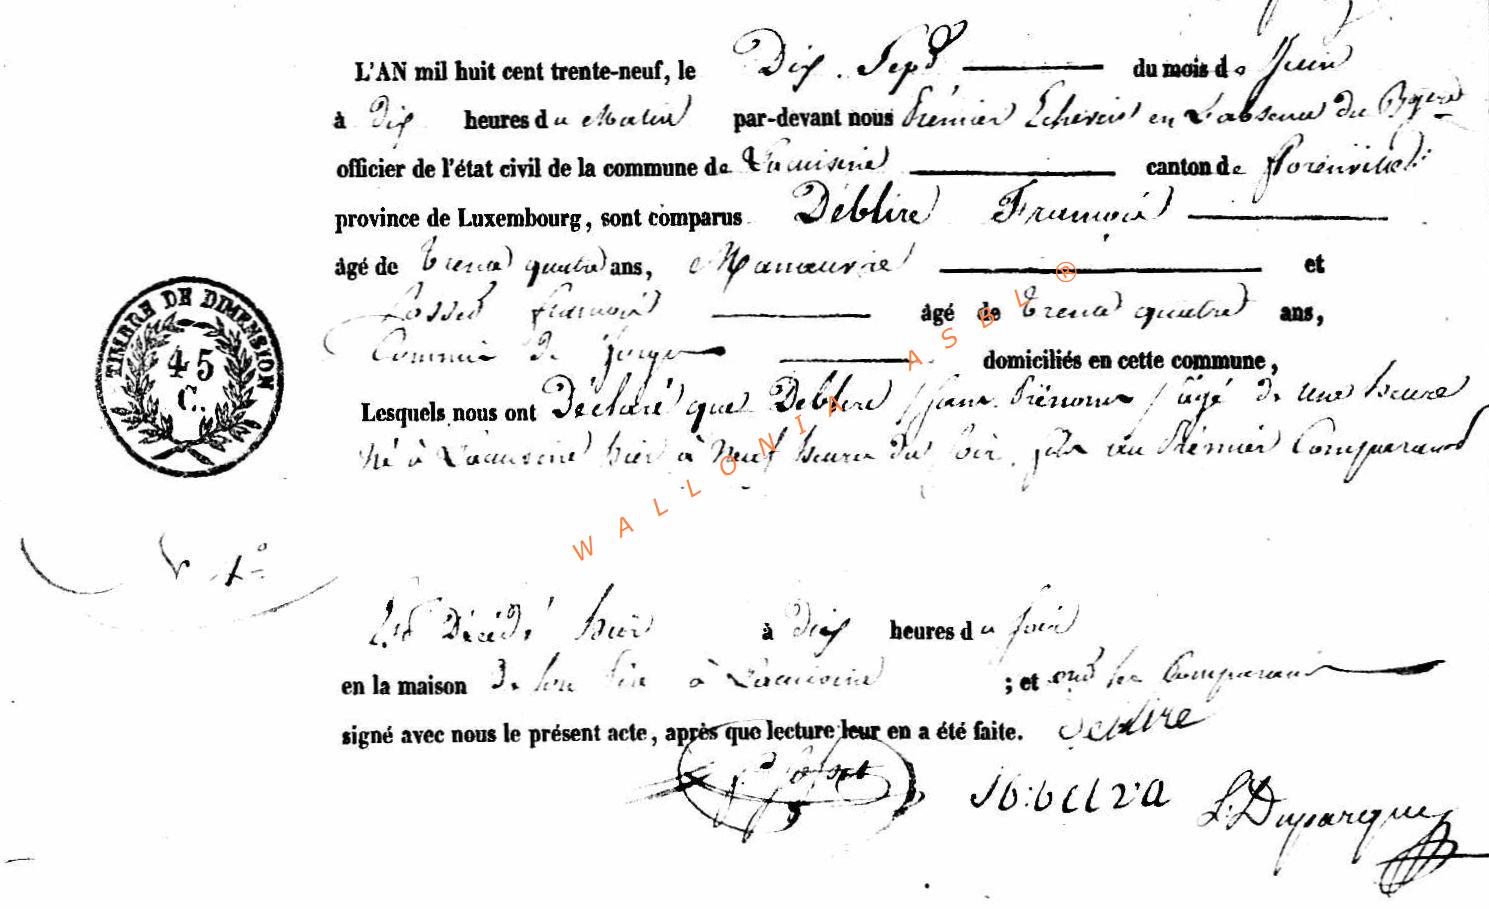 L'AN mil huit cent trente-neuf, le Dix Sept du mois de Juin
à Dix heures du Matin par-devant nous Prémier Echevin en L'absence du Bgmr
officier de l'état civil de la commune de Lacuisine canton de florenville
province de Luxembourg, sont comparus Déblire François
âgé de trente quatre ans, Manœuvre et
Fosset françois âgé de trente quatre ans,
Commis de forge domiciliés en cette commune,
Lesquels nous ont Déclaré que Deblire /sans Prénoms/ âgé de une heure
né à Lacuisine hier à Neuf heures du soir, fils du Prémier Comparant
TIMBRE DE DIMENSION
45
C.
Est Décédé hier à Dix heures du soir
en la maison de son Père à Lacuisine ; et ont les Comparants
signé avec nous le présent acte, après que lecture leur en a été faite. Deblire
L. Duparque
WALLONIA ASBL ®